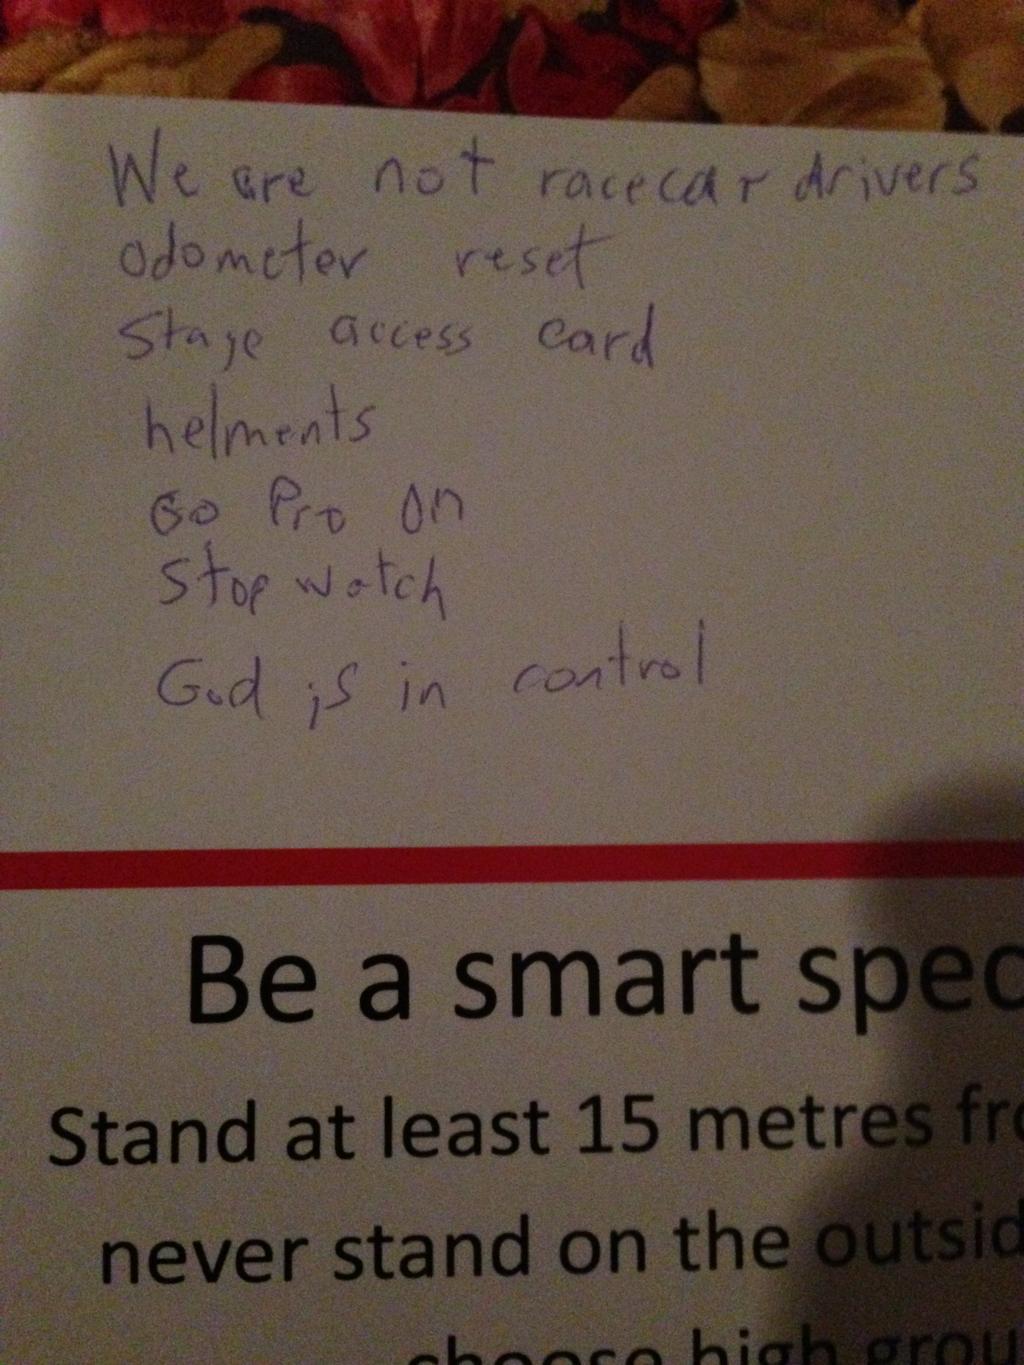 We are not racecar drivers
odometer reset
Stage access card
helments
Go Pro On
Stop watch
God is in control
Be a smart spec
Stand at least 15 metres fro
never stand on the outsid
choose high grou